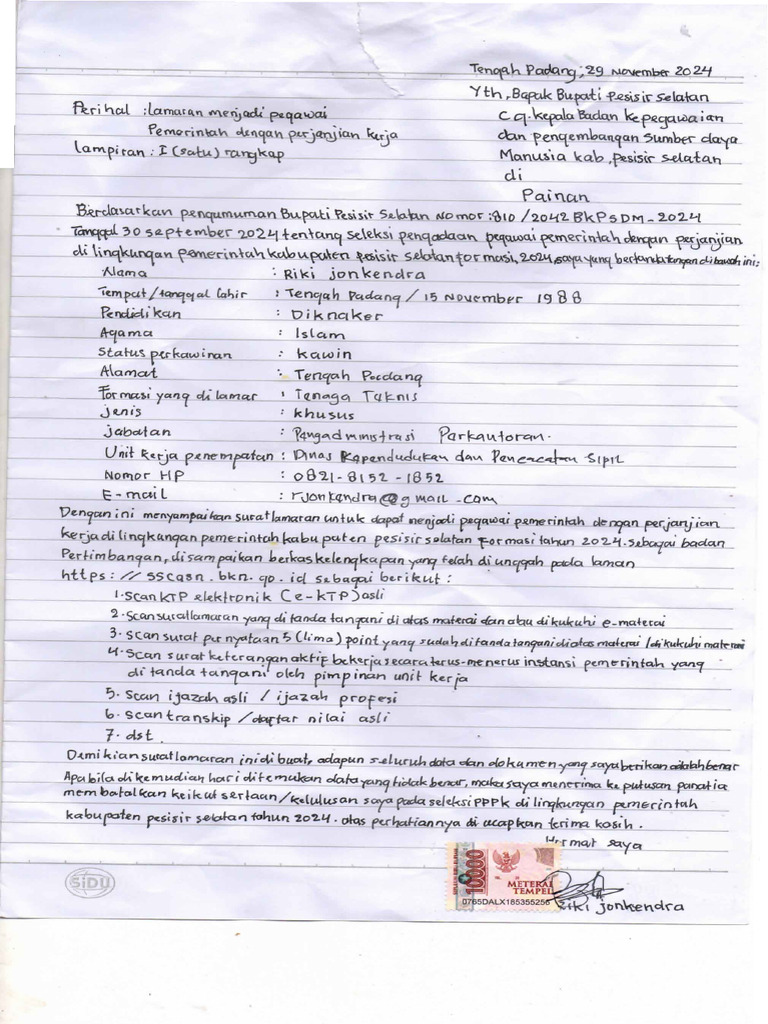 Tengah Padang, 29 November 2024
Yth, Bapak Bupati Pesisir Selatan
Cq. Kepala Badan Kepegawaian
dan pengembangan Sumber daya
Manusia kab, pesisir selatan
di
Painan
Perihal : lamaran menjadi pegawai
Pemerintah dengan perjanjian kerja
Lampiran : I (satu) rangkap
Berdasarkan pengumuman Bupati Pesisir Selatan Nomor : 810 / 2042 BKPSDM - 2024
Tanggal 30 september 2024 tentang seleksi pengadaan pegawai pemerintah dengan perjanjian
di lingkungan pemerintah kabupaten pesisir selatan formasi, 2024, saya yang bertanda tangan di bawah ini :
Nama : Riki jonkendra
Tempat / tanggal Lahir : Tengah Padang / 15 November 1988
Pendidikan : Diknaker
Agama : Islam
Status perkawinan : kawin
Alamat : Tengah Padang
Formasi yang di lamar : Tenaga Teknis
jenis : khusus
jabatan : Pengadministrasi Parkantoran.
Unit kerja penempatan : Dinas Kependudukan dan Pencacatan Sipil
Nomor HP : 0821 - 8152 - 1852
E - mail : rjonkendra@gmail.com
Dengan ini menyampaikan surat lamaran untuk dapat menjadi pegawai pemerintah dengan perjanjian
kerja di lingkungan pemerintah kabupaten pesisir selatan formasi tahun 2024. sebagai badan
Pertimbangan, disampaikan berkas kelengkapan yang telah di unggah pada laman
https : // sscasn . bkn . go . id sebagai berikut :
1. Scan KTP elektronik (e-KTP) asli
2. Scan surat lamaran yang di tanda tangani di atas materai dan atau di kukuhi e-materai
3. Scan surat pernyataan 5 (lima) point yang sudah di tanda tangani di atas materai / di kukuhi materai
4. Scan surat keterangan aktif bekerja secara terus-menerus instansi pemerintah yang
di tanda tangani oleh pimpinan unit kerja
5. Scan ijazah asli / ijazah profesi
6. Scan transkip / daftar nilai asli
7. dst
Demikian surat lamaran ini di buat, adapun seluruh data dan dokumen yang saya berikan adalah benar
Apabila di kemudian hari di temukan data yang tidak benar, maka saya menerima keputusan panatia
membatalkan keikut sertaan / kelulusan saya pada seleksi PPPK di lingkungan pemerintah
kabupaten pesisir selatan tahun 2024. atas perhatiannya di ucapkan terima kasih.
Hormat saya
10000
METERAI
TEMPEL
0765DALX185355256
Riki jonkendra
SiDU